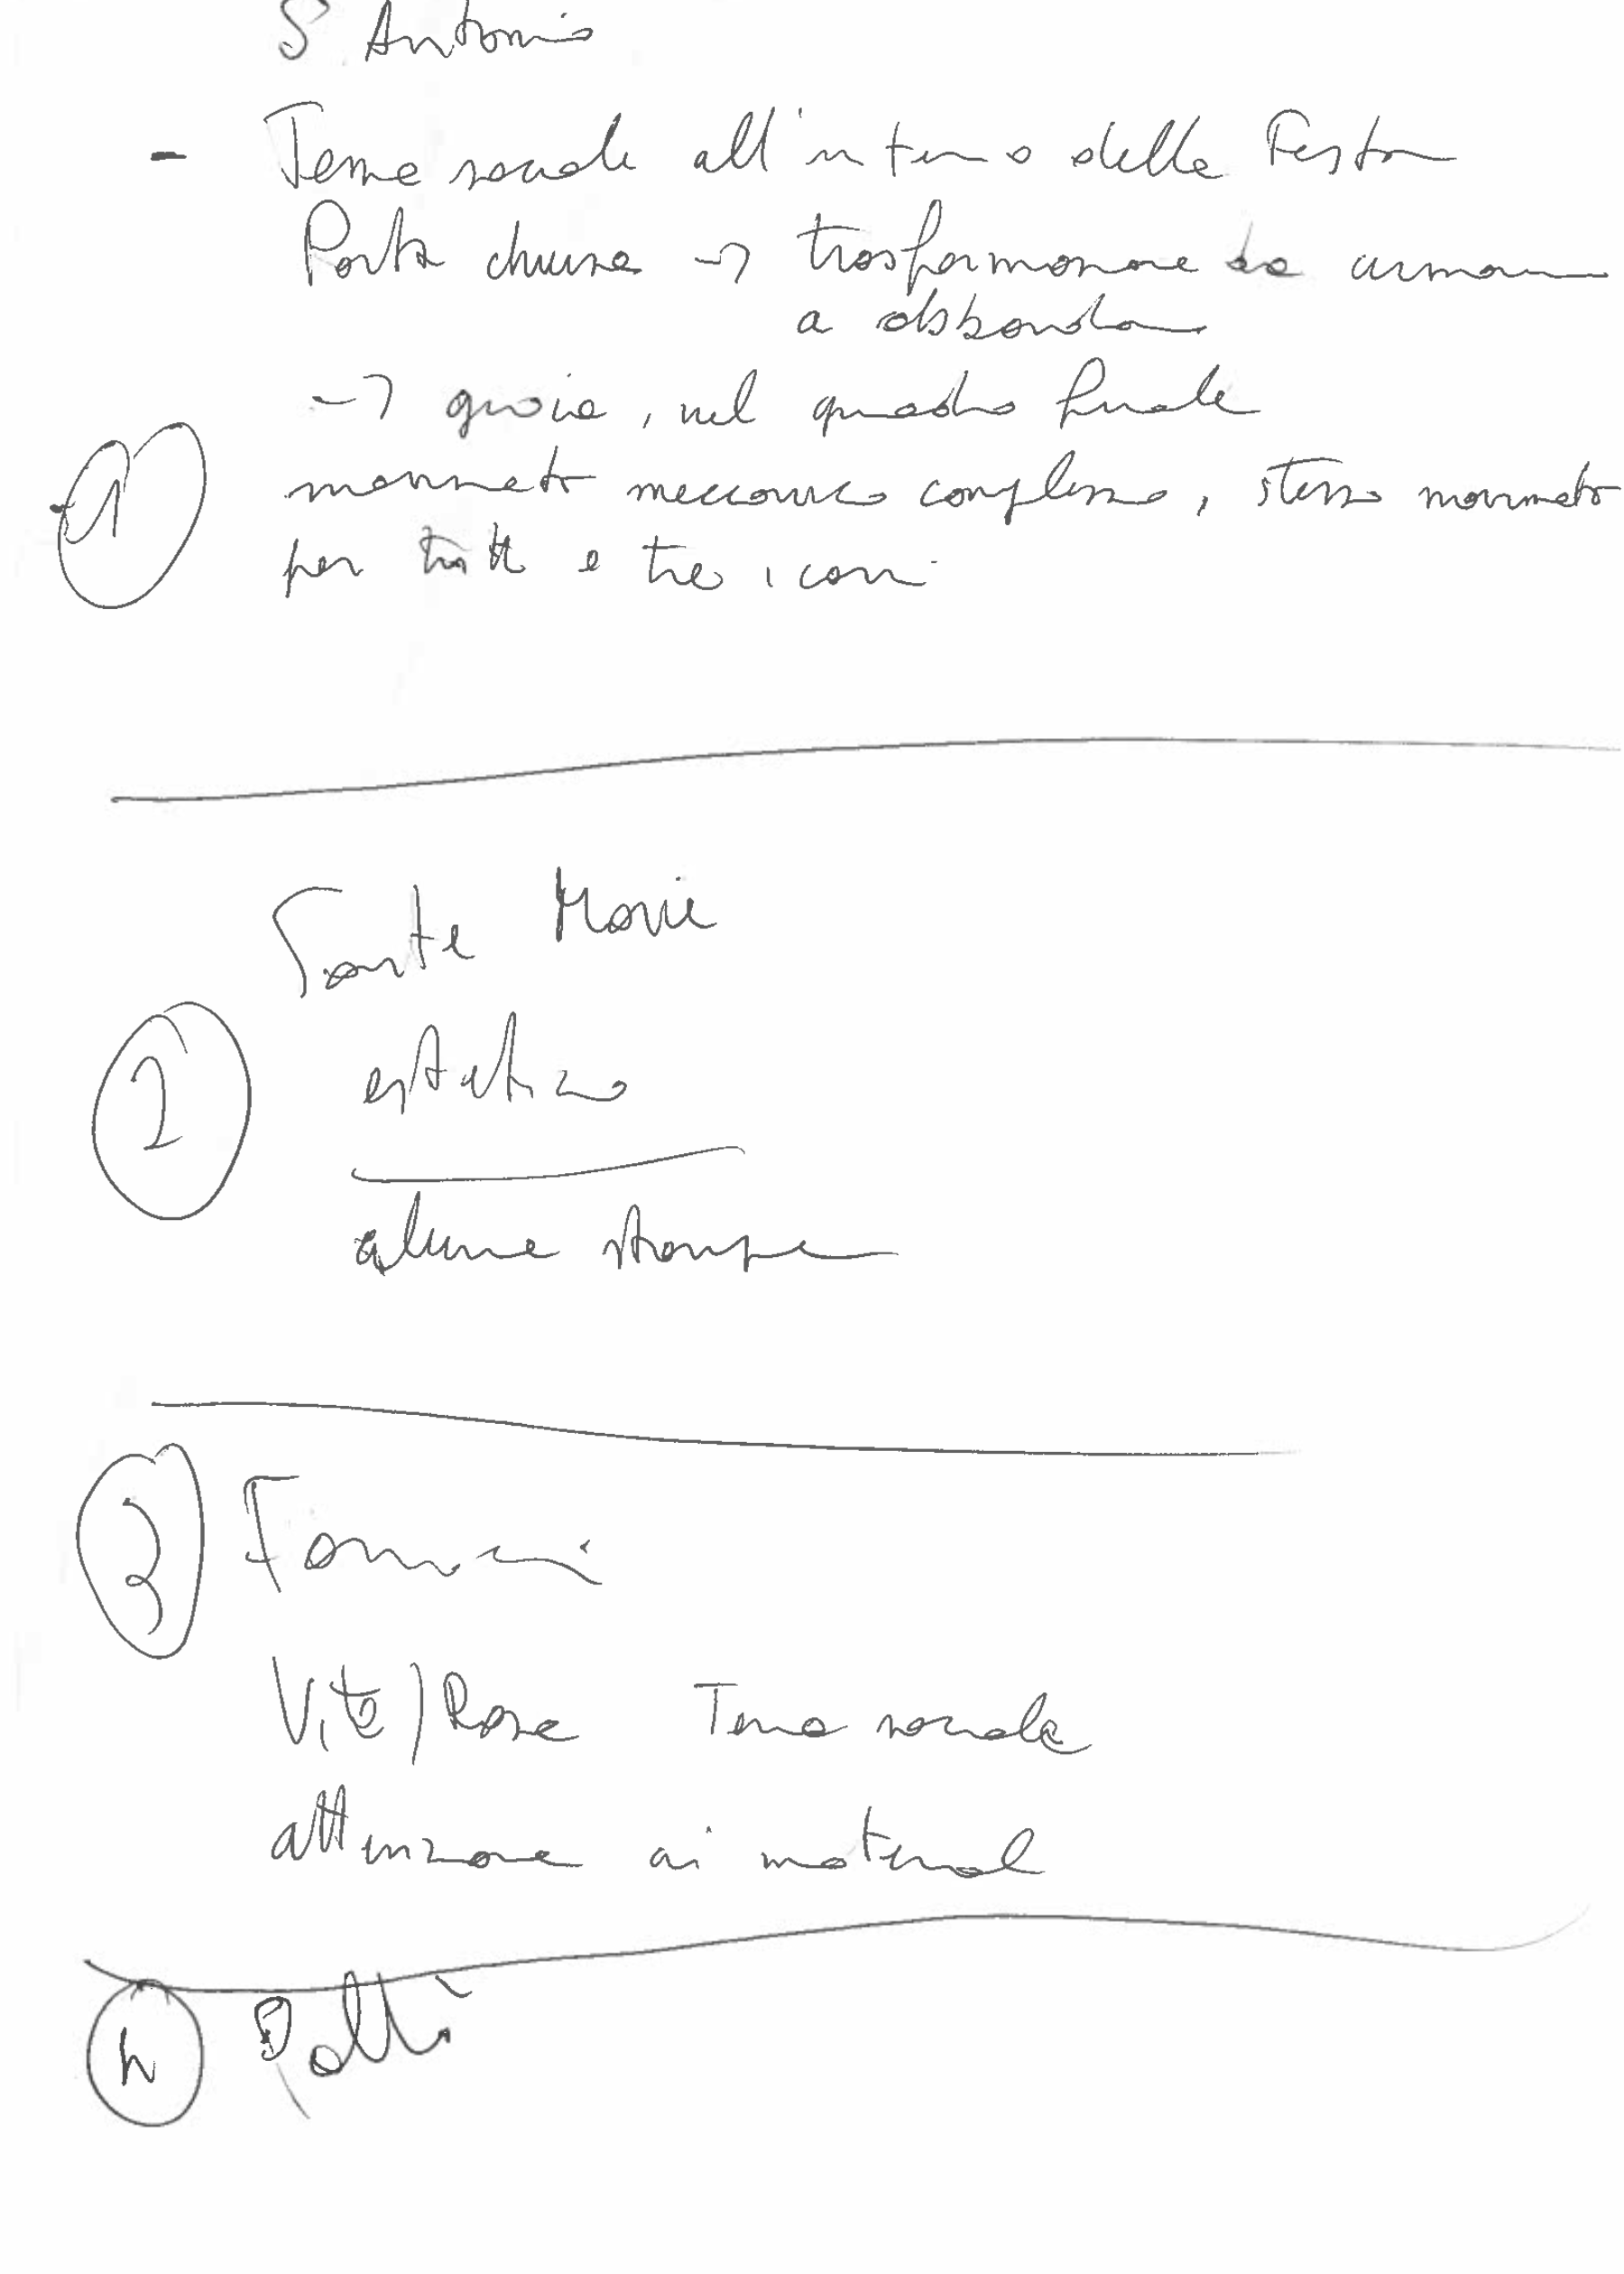 S. Antonio
- Tema sociale all'interno della Festa
Porta chiusa → trasformazione da armonia
a
→ gioia, nel quadro finale
1 movimento meccanico complesso, stesso movimento
per tutti e tre i carri
Fonte Movie
2 estetico
alcune stampe
3 Fornaci
Vite/Rose Tema sociale
attenzione ai materiali
4